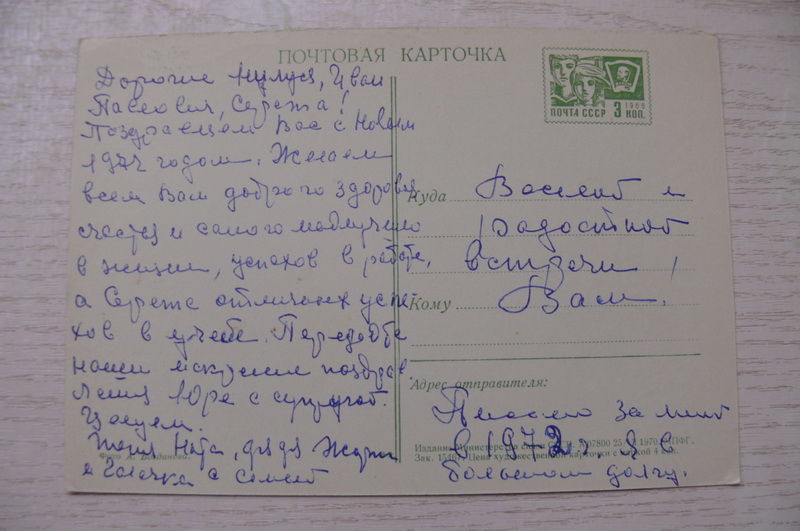 ПОЧТОВАЯ КАРТОЧКА
ПОЧТА СССР 3 КОП.
1966
Дорогие Муłуся, Иван
Павлович, Сережа!
Поздравляем Вас с Новым
1972 годом. Желаем
всем Вам доброго здоровья
счастья и самого наилучшего
в жизни, успехов в работе,
а Сереже отличных успе-
хов в учебе. Передайте
наши искренние поздрав.
Лена, Юре с супругой.
Целуем.
Ната, дядя Жора
и Галочка с семьей
Куда
Веселой и
радостной
встречи
Кому
Вам!
Адрес отправителя:
Письмо за мной
в 1972 г. Я в
большом долгу.
Издание Министерства связи СССР. 07800 25 1970. ППФГ.
Зак. 1546. Цена художественной карточки с маркой 4 коп.
Фото Богданова.